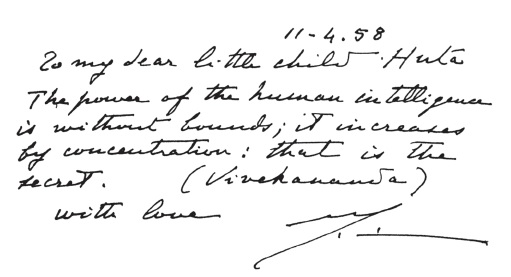 11-4.58
To my dear little child Huta
The power of the human intelligence
is without bounds; it increases
by concentration: that is the
secret. (Vivekananda)
with love